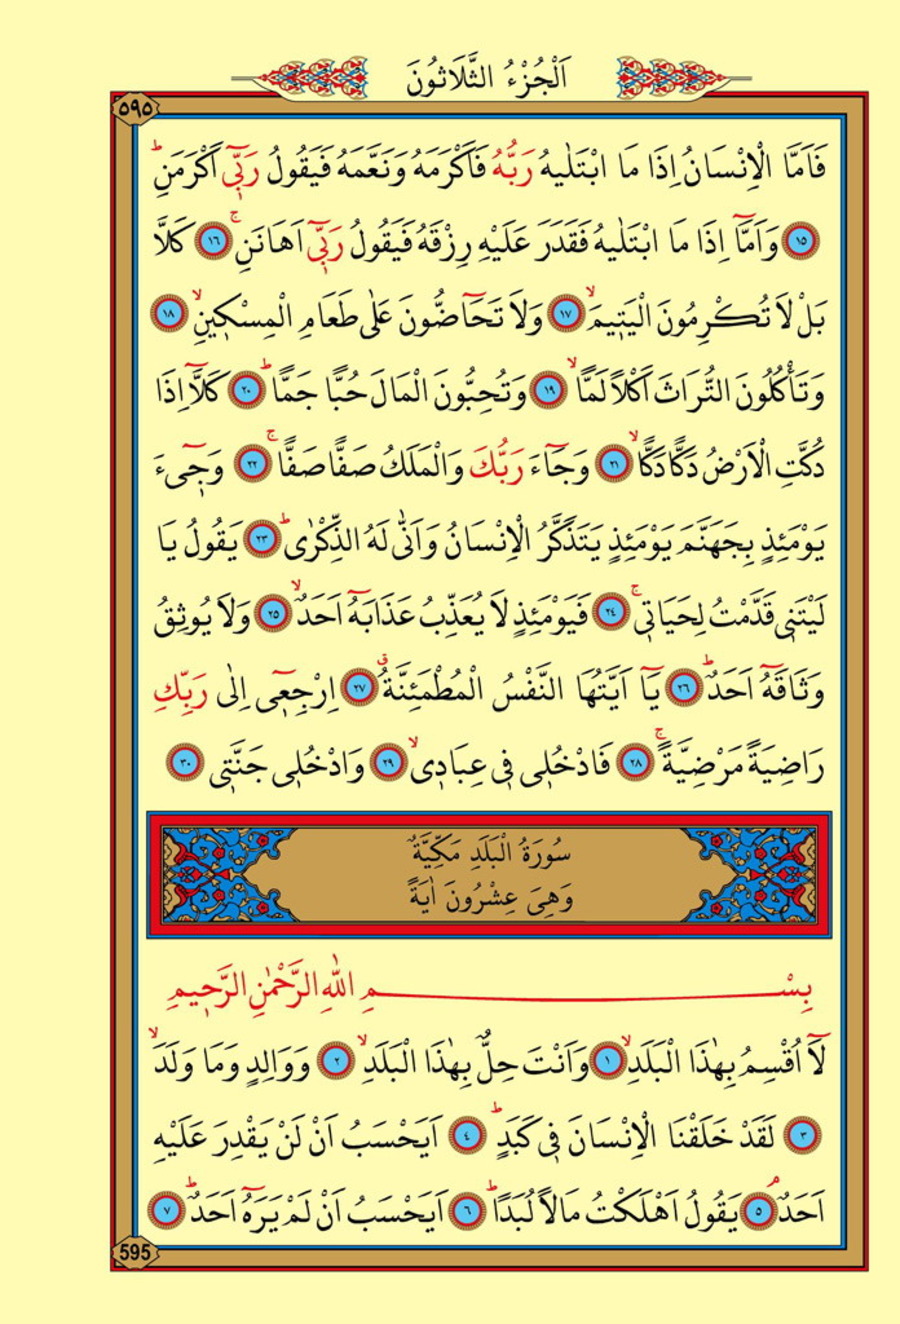 اَلْجُزْءُ الثَّلَاثُونَ
٥٩٥
فَاَمَّا الْاِنْسَانُ اِذَا مَا ابْتَلٰيهُ رَبُّهُ فَاَكْرَمَهُ وَنَعَّمَهُ فَيَقُولُ رَبّ۪ٓي اَكْرَمَنِۜ
﴿١٥﴾ وَاَمَّٓا اِذَا مَا ابْتَلٰيهُ فَقَدَرَ عَلَيْهِ رِزْقَهُ فَيَقُولُ رَبّ۪ٓي اَهَانَنِۚ ﴿١٦﴾ كَلَّا
بَلْ لَا تُكْرِمُونَ الْيَت۪يمَۙ ﴿١٧﴾ وَلَا تَحَٓاضُّونَ عَلٰى طَعَامِ الْمِسْك۪ينِۙ ﴿١٨﴾
وَتَأْكُلُونَ التُّرَاثَ اَكْلًا لَمًّاۙ ﴿١٩﴾ وَتُحِبُّونَ الْمَالَ حُبًّا جَمًّاۜ ﴿٢٠﴾ كَلَّٓا اِذَا
دُكَّتِ الْاَرْضُ دَكًّا دَكًّاۙ ﴿٢١﴾ وَجَٓاءَ رَبُّكَ وَالْمَلَكُ صَفًّا صَفًّاۚ ﴿٢٢﴾ وَج۪ٓيءَ
يَوْمَئِذٍ بِجَهَنَّمَ يَوْمَئِذٍ يَتَذَكَّرُ الْاِنْسَانُ وَاَنّٰى لَهُ الذِّكْرٰىۜ ﴿٢٣﴾ يَقُولُ يَا
لَيْتَن۪ي قَدَّمْتُ لِحَيَات۪يۚ ﴿٢٤﴾ فَيَوْمَئِذٍ لَا يُعَذِّبُ عَذَابَهُٓ اَحَدٌۙ ﴿٢٥﴾ وَلَا يُوثِقُ
وَثَاقَهُٓ اَحَدٌۜ ﴿٢٦﴾ يَٓا اَيَّتُهَا النَّفْسُ الْمُطْمَئِنَّةُۗ ﴿٢٧﴾ اِرْجِع۪ٓي اِلٰى رَبِّكِ
رَاضِيَةً مَرْضِيَّةًۚ ﴿٢٨﴾ فَادْخُل۪ي ف۪ي عِبَاد۪يۙ ﴿٢٩﴾ وَادْخُل۪ي جَنَّت۪ي ﴿٣٠﴾
سُورَةُ الْبَلَدِ مَكِّيَّةٌ
وَهِيَ عِشْرُونَ اٰيَةً
بِسْمِ اللّٰهِ الرَّحْمٰنِ الرَّح۪يمِ
لَٓا اُقْسِمُ بِهٰذَا الْبَلَدِۙ ﴿١﴾ وَاَنْتَ حِلٌّ بِهٰذَا الْبَلَدِۙ ﴿٢﴾ وَوَالِدٍ وَمَا وَلَدَۙ
﴿٣﴾ لَقَدْ خَلَقْنَا الْاِنْسَانَ ف۪ي كَبَدٍۜ ﴿٤﴾ اَيَحْسَبُ اَنْ لَنْ يَقْدِرَ عَلَيْهِ
اَحَدٌۢ ﴿٥﴾ يَقُولُ اَهْلَكْتُ مَالًا لُبَدًاۜ ﴿٦﴾ اَيَحْسَبُ اَنْ لَمْ يَرَهُٓ اَحَدٌۜ ﴿٧﴾
595